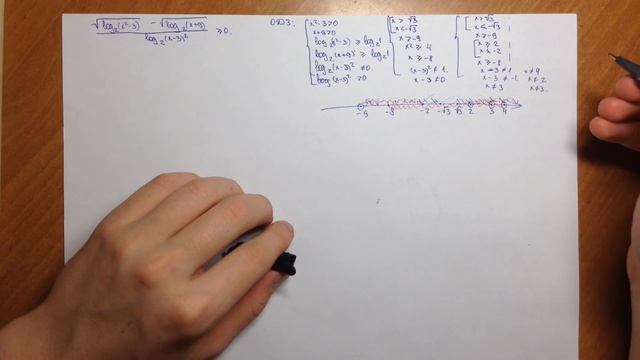 √log₂(x²-3) - √log₂(x+9)
log₂(x-3)²
≥0.
ОДЗ:
x²-3>0
x+9>0
log₂(x²-3) ≥ log₂1
log₂(x+9) ≥ log₂1
log₂(x-3)² ≠0.
(x-3)² >0
x > √3
x < -√3
x > -9
x² ≥ 4
x ≥ -8
(x-3)² ≠ 1
x-3 ≠ 0
x > √3
x < -√3
x > -9
x ≥ 2
x ≤ -2
x ≥ -8
x-3 ≠ 1 x≠4
x-3 ≠ -1 x≠2
x≠3 x≠3
-9 -8 -2 -√3 √3 2 3 4